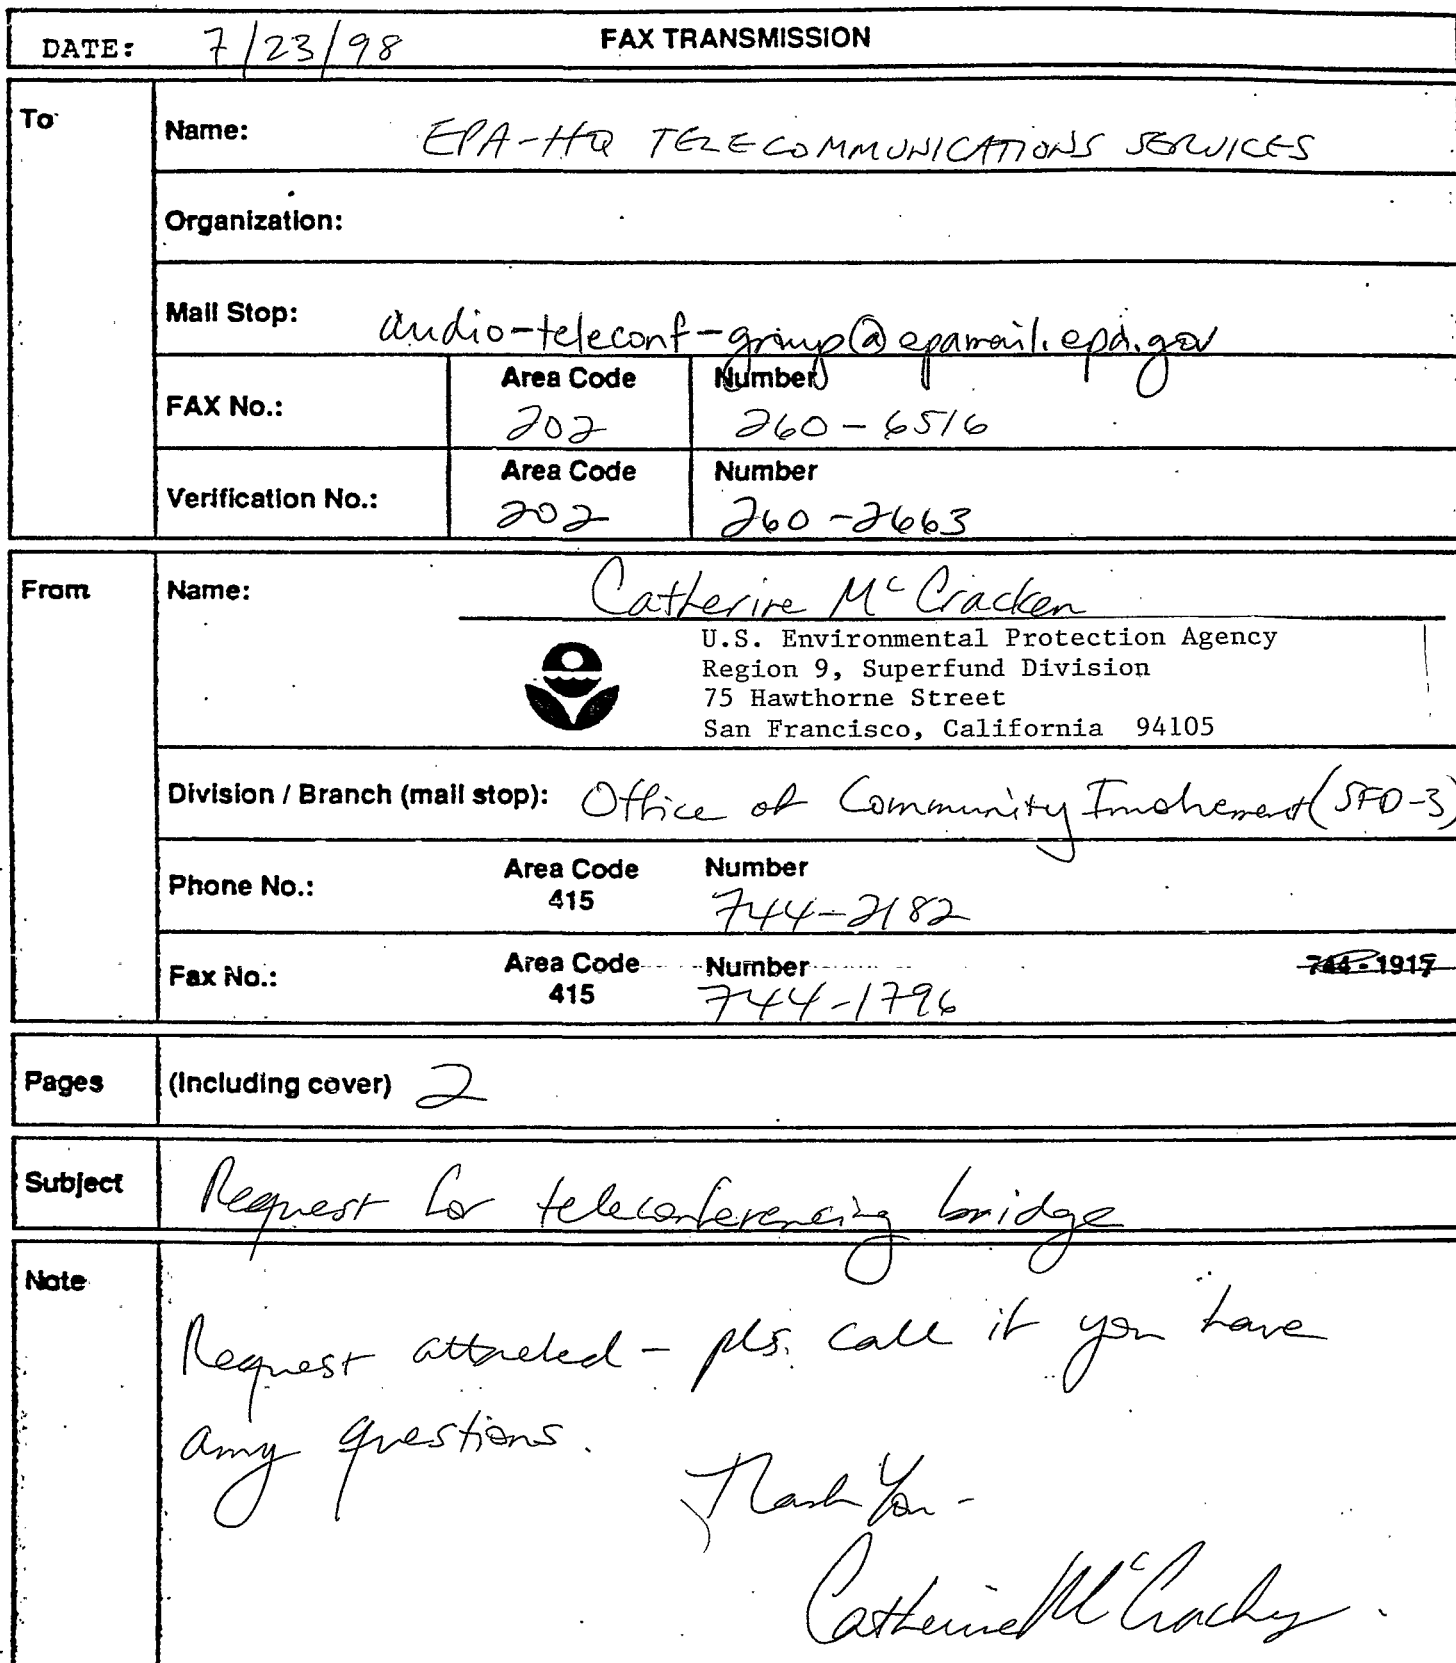 DATE: 7/23/98 FAX TRANSMISSION
To
Name: EPA-HQ TELECOMMUNICATIONS SERVICES
Organization:
Mail Stop: audio-teleconf-group@epamail.epa.gov
FAX No.: Area Code 202 Number 260-6516
Verification No.: Area Code 202 Number 260-2663
From
Name: Catherine McCracken
U.S. Environmental Protection Agency
Region 9, Superfund Division
75 Hawthorne Street
San Francisco, California 94105
Division / Branch (mail stop): Office of Community Involvement (SFD-3)
Phone No.: Area Code 415 Number 744-2182
Fax No.: Area Code 415 Number 744-1796 744-1917
Pages (Including cover) 2
Subject Request for teleconferencing bridge
Note
Request attached - pls. call if you have
any questions.
Thank You -
Catherine McCracken